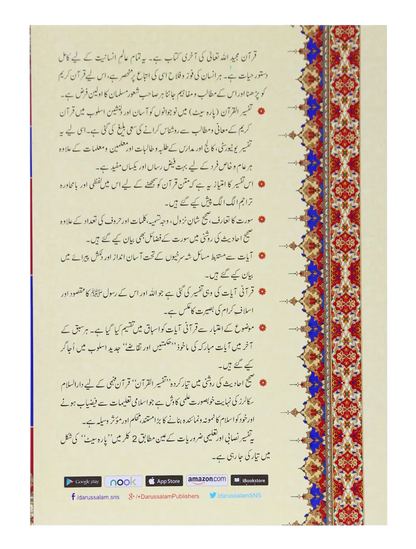 قرآن مجید اللہ تعالیٰ کی آخری کتاب ہے۔ یہ تمام عالمِ انسانیت کے لیے کامل
دستورِ حیات ہے۔ ہر انسان کی فوز و فلاح اسی کی اتباع پر منحصر ہے، اس لیے قرآن کریم
کو پڑھنا اور اس کے مطالب و مفاہیم جاننا ہر صاحبِ شعور مسلمان کا اولین فرض ہے۔
تفسیر القرآن (پارہ سیٹ) میں نوجوانوں کو آسان اور دلنشین اسلوب میں قرآن
کریم کے معانی و مطالب سے روشناس کرانے کی سعی بلیغ کی گئی ہے۔ اسی لیے یہ
تفسیر یونیورسٹی، کالج اور مدارس کے طلبہ و طالبات اور معلمین و معلمات کے علاوہ
ہر عام و خاص فرد کے لیے بہت فیض رساں اور یکساں مفید ہے۔
اس تفسیر کا امتیاز یہ ہے کہ متنِ قرآن کو سمجھنے کے لیے اس میں لفظی اور بامحاورہ
تراجم الگ الگ پیش کیے گئے ہیں۔
سورت کا تعارف، صحیح شانِ نزول، وجہ تسمیہ، کلمات اور حروف کی تعداد کے علاوہ
صحیح احادیث کی روشنی میں سورت کے فضائل بھی بیان کیے گئے ہیں۔
آیات سے مستنبط مسائل شہ سرخیوں کے تحت آسان انداز اور دلکش پیرائے میں
بیان کیے گئے ہیں۔
قرآنی آیات کی وہی تفسیر کی گئی ہے جو اللہ اور اس کے رسول ﷺ کا مقصود اور
اسلاف کرام کی بصیرت کا عکس ہے۔
موضوع کے اعتبار سے قرآنی آیات کو اسباق میں تقسیم کیا گیا ہے۔ ہر سبق کے
آخر میں آیات مبارکہ کی ماخوذ ''حکمتیں اور تقاضے'' جدید اسلوب میں اُجاگر
کیے گئے ہیں۔
صحیح احادیث کی روشنی میں تیار کردہ ''تفسیر القرآن'' قرآن فہمی کے لیے دارالسلام
سکالرز کی نہایت خوبصورت علمی کاوش ہے جو اسلامی تعلیمات سے فیضیاب ہونے
اور خود کو اسلام کا نمونہ و نمائندہ بنانے کا بڑا مستند، محکم اور مؤثر وسیلہ ہے۔
یہ تفسیر نصابی اور تعلیمی ضروریات کے عین مطابق 2 کلر میں ''پارہ سیٹ'' کی شکل
میں تیار کی جا رہی ہے۔
Google play nook App Store amazon.com iBookstore
/darussalam.sns /+DarussalamPublishers /darussalamSNS